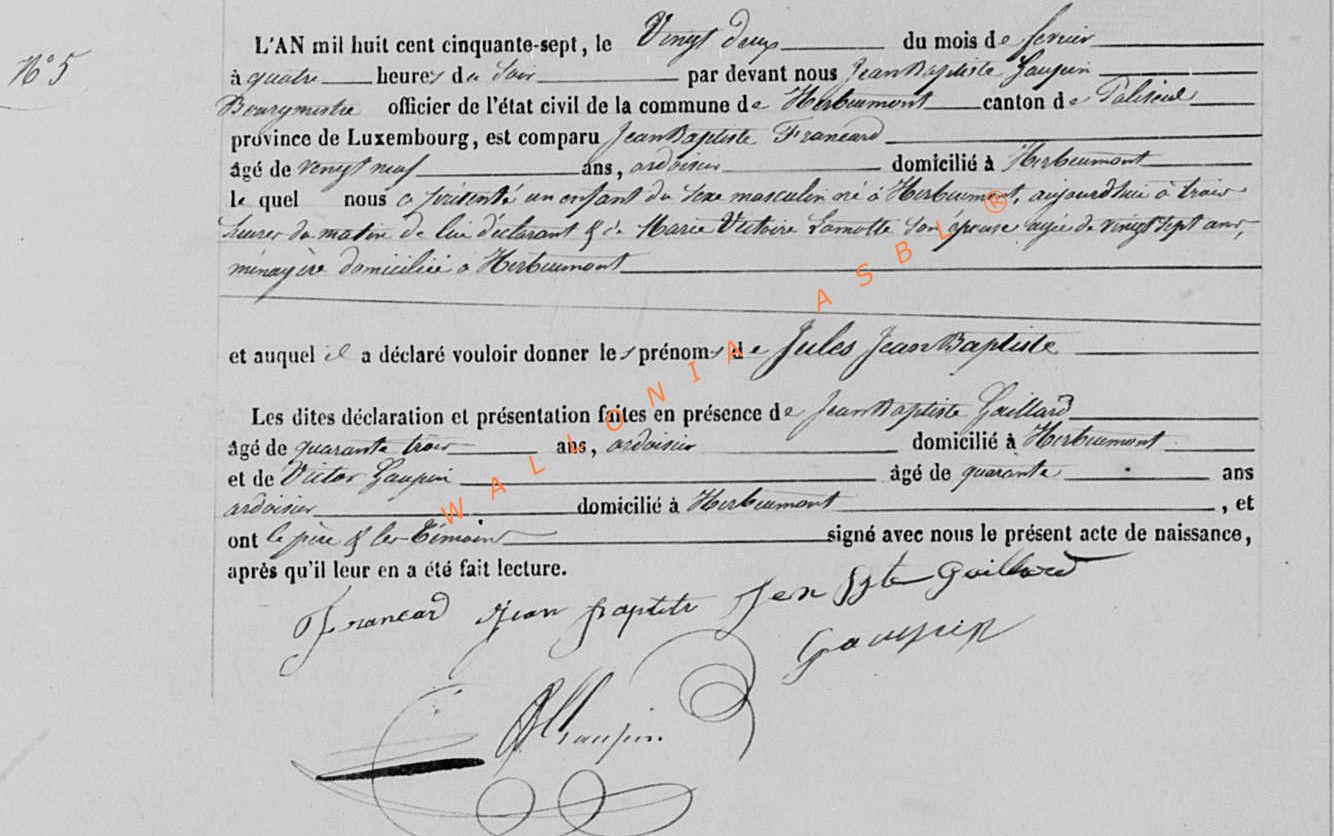 N° 5
L'AN mil huit cent cinquante-sept, le Vingt deux du mois de fevrier
à quatre heures du Soir par devant nous Jean Baptiste Gaupin
Bourgmestre officier de l'état civil de la commune de Herbeumont canton de Paliseul
province de Luxembourg, est comparu Jean Baptiste Francard
âgé de vingt neuf ans, ardoisier domicilié à Herbeumont
le quel nous a présenté un enfant du sexe masculin né à Herbeumont, aujourd'hui à trois
heures du matin de lui déclarant & de Marie Victoire Lamotte son épouse agée de vingt sept ans,
ménagère domiciliée à Herbeumont
et auquel il a déclaré vouloir donner les prénoms de Jules Jean Baptiste
Les dites déclaration et présentation faites en présence de Jean Baptiste Gaillard
âgé de quarante trois ans, ardoisier domicilié à Herbeumont
et de Victor Gaupin âgé de quarante ans
ardoisier domicilié à Herbeumont, et
ont le père & les témoins signé avec nous le présent acte de naissance,
après qu'il leur en a été fait lecture.
Francard Jean Baptiste Jen Bpte Gaillard
Gaupin
Gaupin
WALLONIA ASBL ®